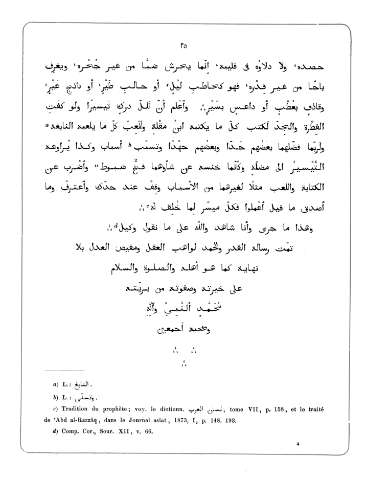 ٢٥
حصده، ولا دلاوه فى قليبه، إنّما يحترش ضبًّا من غير جُحره، ويغرف
باجًا من غير قِدره، فهو كحاطب ليل، أو حالب طَيْر، أو نادى عَير،
وقاذف بعُضْب أو داعس بسَيْر، وأعلم أن لكلّ دركه تيسيرًا ولو كفت
الفطرة والتجدّ لكتب كلّ ما يكتبه ابن مقلة ولَلَعِبَ كلّ ما يلعبه النابغه a
ولربّما فضلهما بعضهم جدًّا وبعضهم جهدًا وتسبّب b أسباب وكدًا يراوغه
التيسير الى مضلّة وكأنّما خنسه عن شأوهما فخّ مضبوط، وأضرب عن
الكتابة واللعب مثلًا لغيرهما من الأسباب وقف عند حدّك وأعترف وما
أصدق ما قيل أعملوا فكلّ ميسّر لما خُلِف له c
وهذا ما جرى وأنا شاهد والله على ما نقول وكيل d
تمّت رسالة القدر والحمد لواهب العقل ومفيض العدل بلا
نهاية كما هو أهله والصلوة والسلام
على خيرته وصفوته من بريّته
محمّد النبىّ وآله
وصحبه أجمعين
a) L: النابغ.
b) L: وتسبّى.
c) Tradition du prophète; voy. le dictionn. لسان العرب, tome VII, p. 158, et le traité
de 'Abd al-Razzâq, dans le Journal asiat, 1873, I, p. 148, 193.
d) Comp. Cor., Sour. XII, v. 66.
4